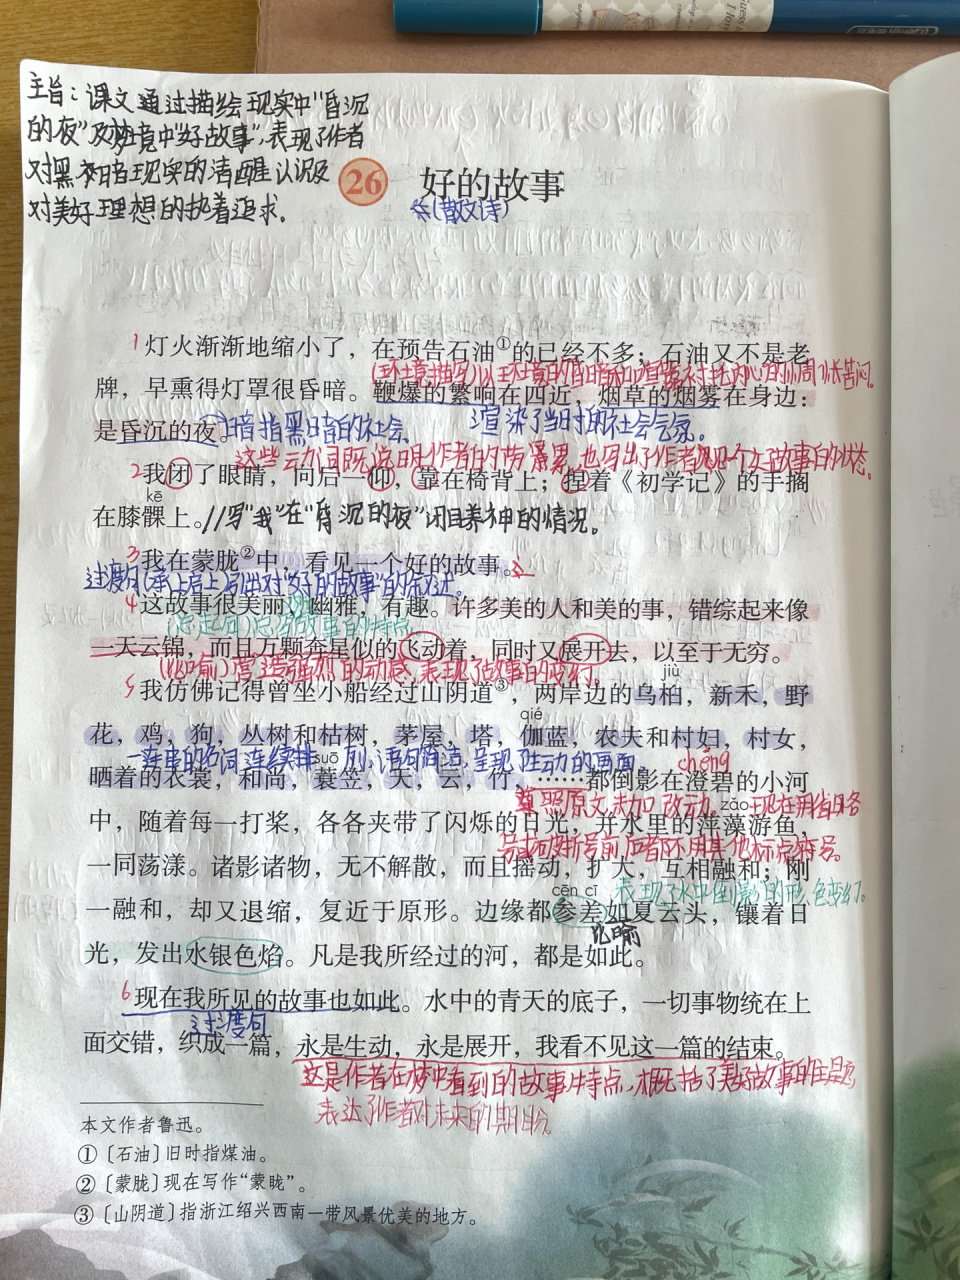 主旨：课文通过描绘现实中"昏沉
的夜"及梦境中"好故事"，表现了作者
对黑暗现实的清醒认识及
对美好理想的执着追求。
26 好的故事
(散文诗)
1灯火渐渐地缩小了，在预告石油①的已经不多；石油又不是老
(环境描写)以环境的昏暗和喧嚣衬托内心的惆怅苦闷。
牌，早熏得灯罩很昏暗。鞭爆的繁响在四近，烟草的烟雾在身边：
是昏沉的夜。
暗指黑暗的社会、
渲染了当时的社会气氛。
这些动词既说明作者的疲累，也写出了作者
好故事的状态。
2我闭了眼睛，向后一仰，靠在椅背上；捏着《初学记》的手搁
kē
在膝髁上。//写"我"在"昏沉的夜"闭目养神的情况。
3我在蒙胧②中，看见一个好的故事。
过渡句(承上启下)引出对"好的故事"的叙述。
4这故事很美丽，幽雅，有趣。许多美的人和美的事，错综起来像
(总起句)总写故事的特点
一天云锦，而且万颗奔星似的飞动着，同时又展开去，以至于无穷。
(比喻)营造强烈的动感，表现了故事的美好。
jiù
5我仿佛记得曾坐小船经过山阴道③，两岸边的乌桕，新禾，野
qié
花，鸡，狗，丛树和枯树，茅屋，塔，伽蓝，农夫和村妇，村女，
一连串的名词连续排列，语句简洁，呈现了生动的画面。
suō
chéng
晒着的衣裳，和尚，蓑笠，天，云，竹，……都倒影在澄碧的小河
遵照原文，未加改动。现在用省略
zǎo
中，随着每一打桨，各各夹带了闪烁的日光，并水里的萍藻游鱼，
号或破折号前后者不用其他标点符号。
一同荡漾。诸影诸物，无不解散，而且摇动，扩大，互相融和；刚
cēn cī
表现了水中倒影的形、色变幻。
一融和，却又退缩，复近于原形。边缘都参差如夏云头，镶着日
比喻
光，发出水银色焰。凡是我所经过的河，都是如此。
6现在我所见的故事也如此。水中的青天的底子，一切事物统在上
过渡句
面交错，织成一篇，永是生动，永是展开，我看不见这一篇的结束。
这是作者在梦中看到的故事特点，概括了美好故事的
表达了作者对未来的期盼。
本文作者鲁迅。
①〔石油〕旧时指煤油。
②〔蒙胧〕现在写作"蒙眬"。
③〔山阴道〕指浙江绍兴西南一带风景优美的地方。